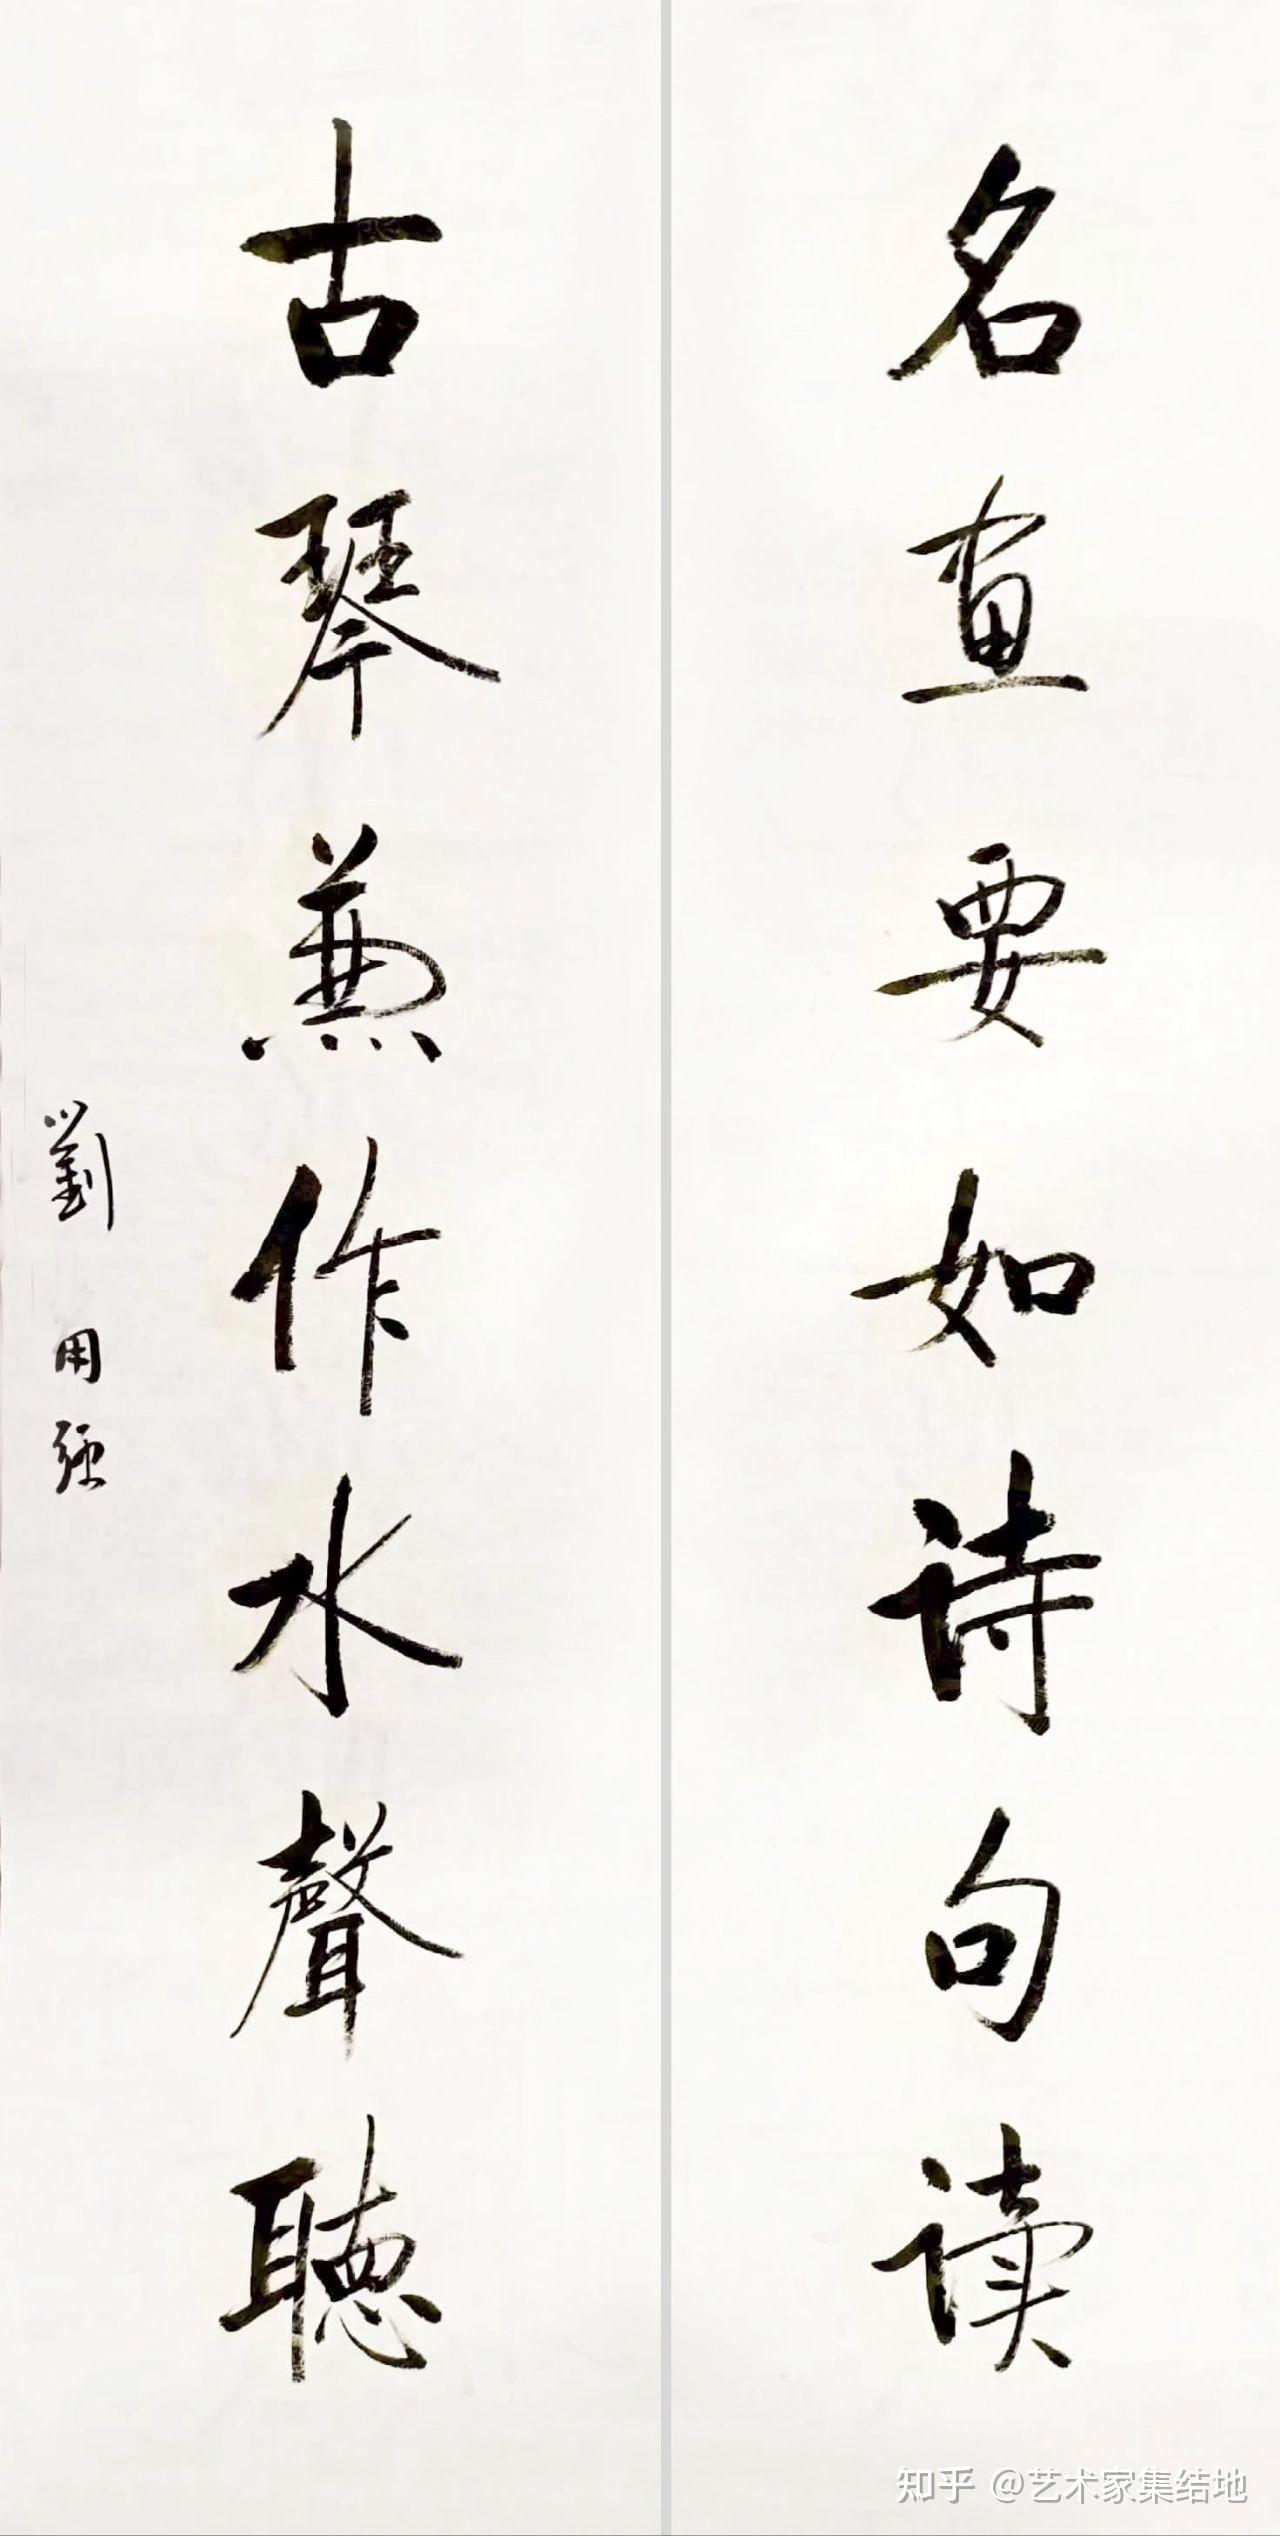 名画要如诗句读
古琴兼作水聲聽
劉用强
知乎 @艺术家集结地